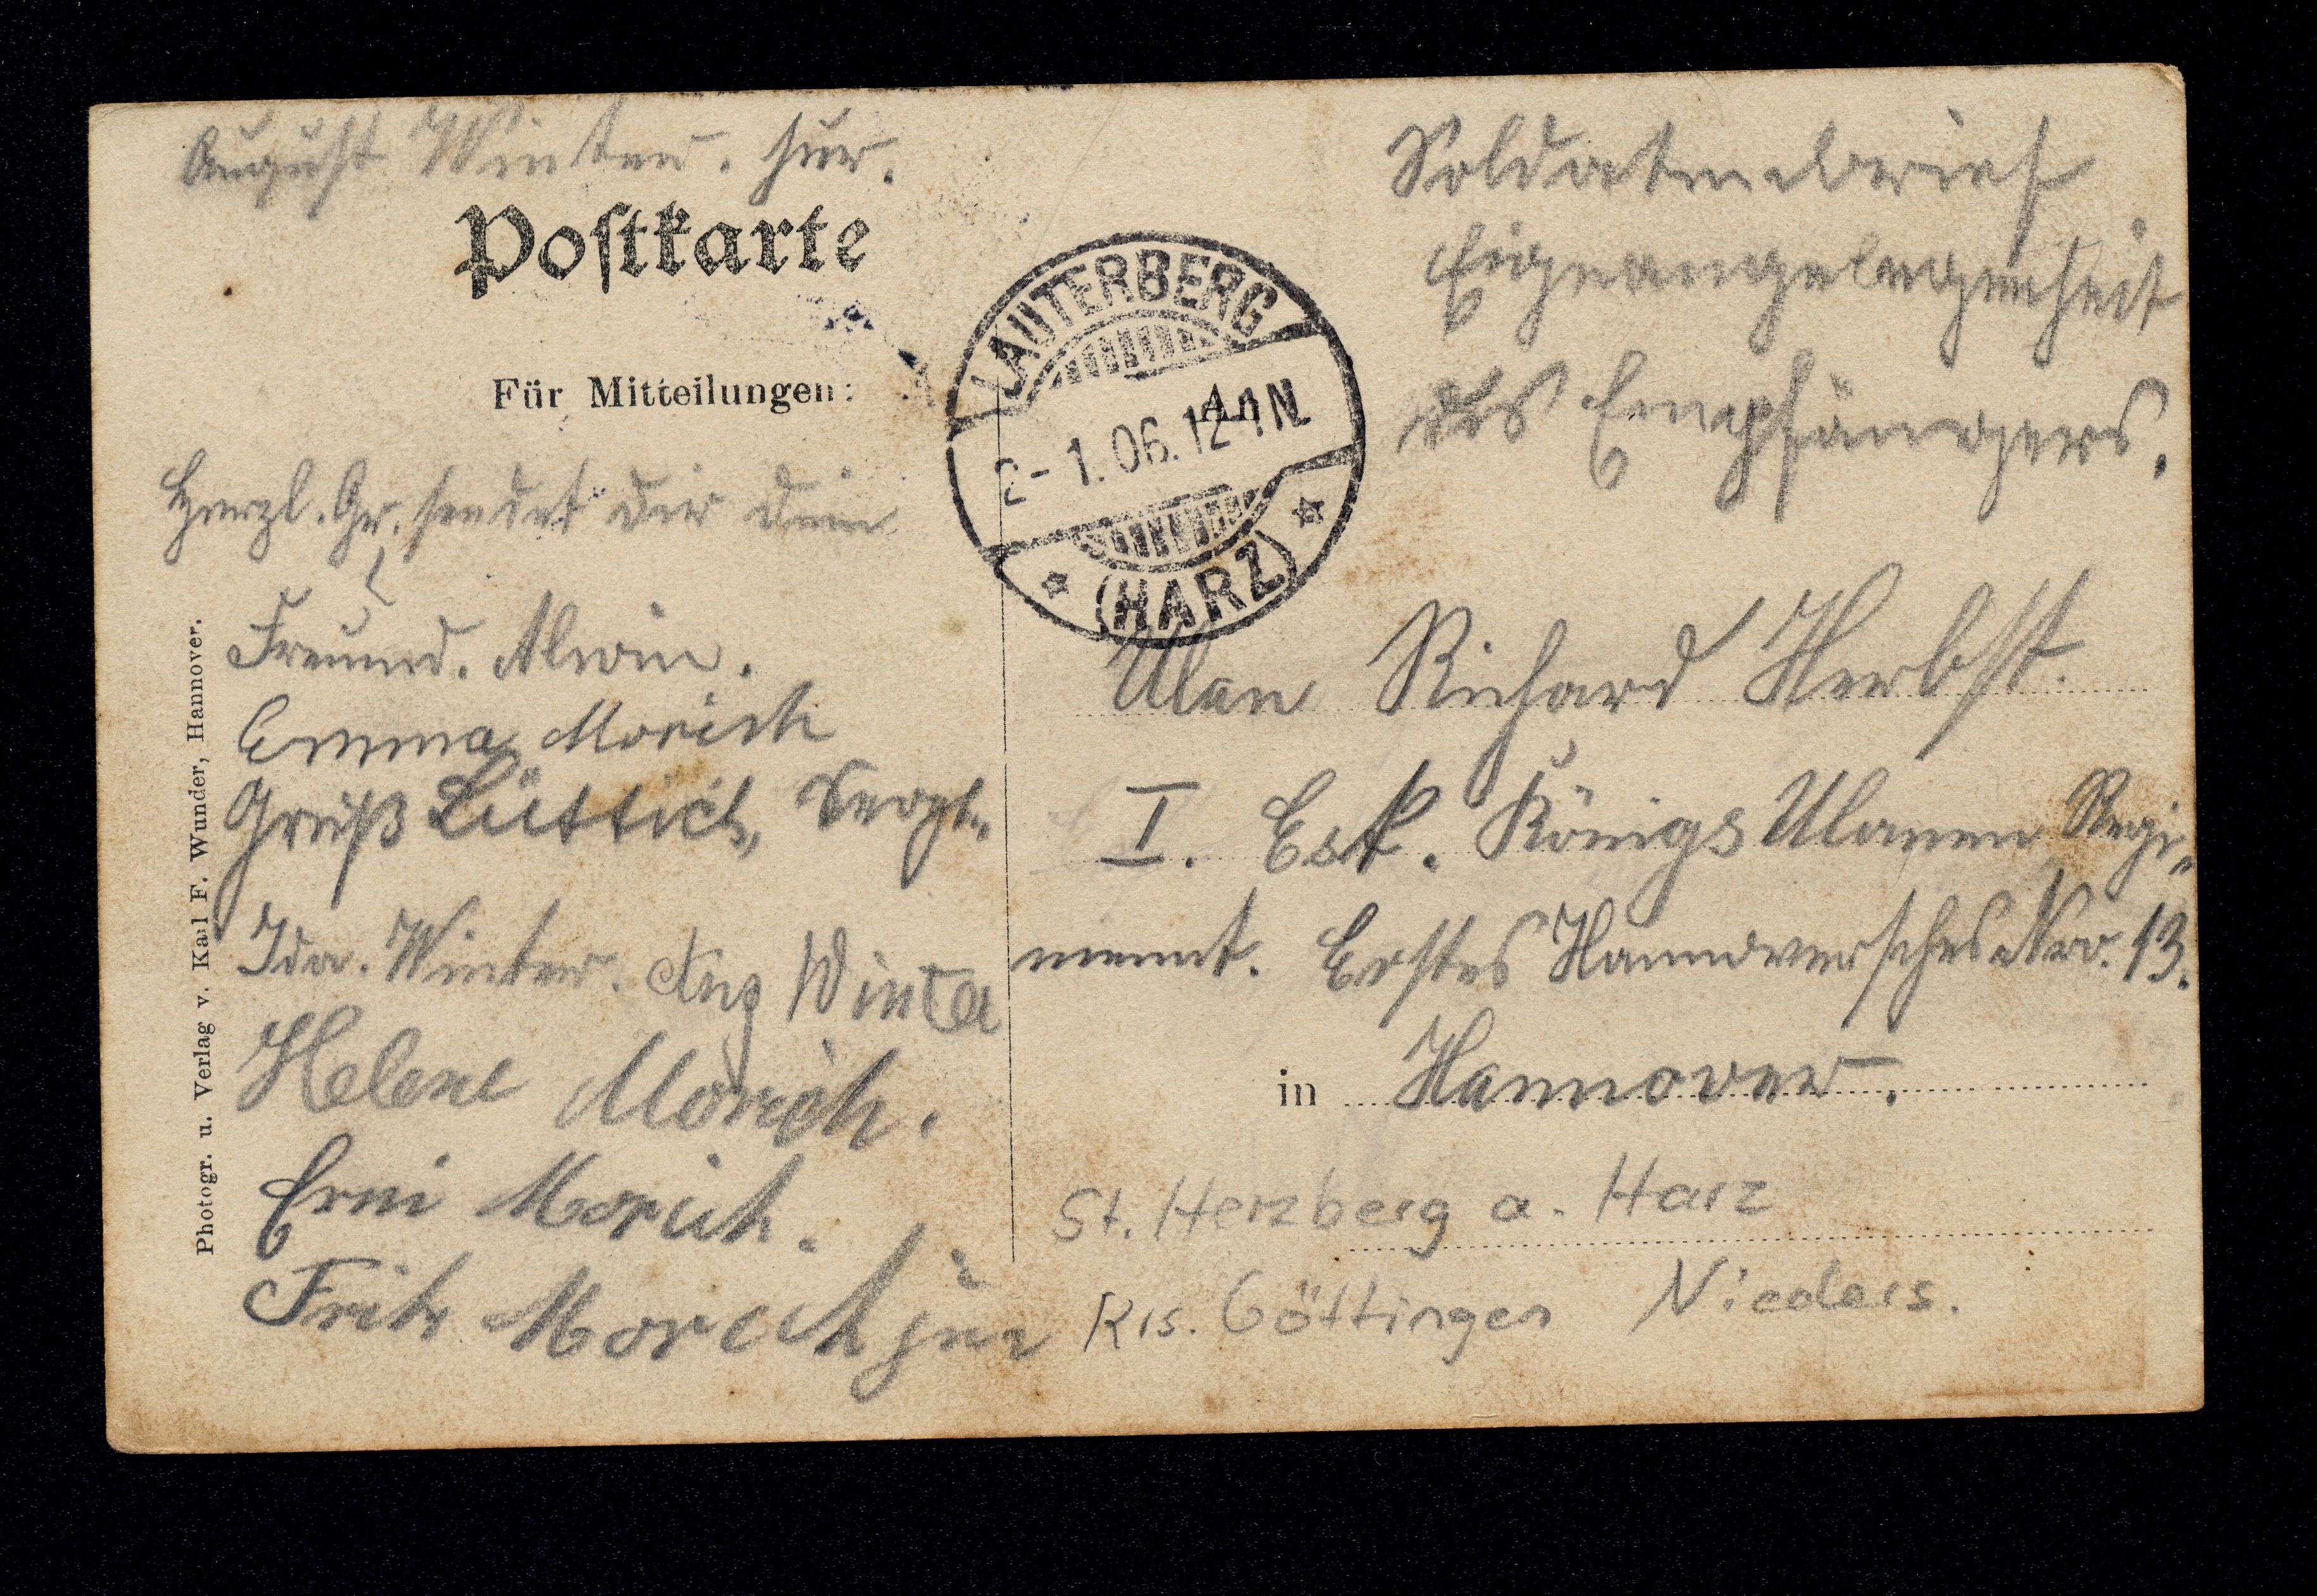 August Winter. jun.
Postkarte
Für Mitteilungen:
Herzl. Gr. sendet dir dein
Freund. Alwin.
Emma Morich
Gruß Lüttich, Sergt.
Ida. Winter. Aug Winter
Helene Morich.
Erni Morich.
Fritz Morich jun
Photogr. u. Verlag v. Karl F. Wunder, Hannover.
LAUTERBERG
2-1.06.12-1N.
(HARZ)
An
Soldatenbrief
Eigneangelegenheit
des Empfängers.
Ulan Richard Herbst.
I. Esk. Königs Ulanen Regi-
ment. Erstes Hannoversches Nro. 13.
in Hannover.
St. Herzberg a. Harz
Krs. Göttingen Nieders.